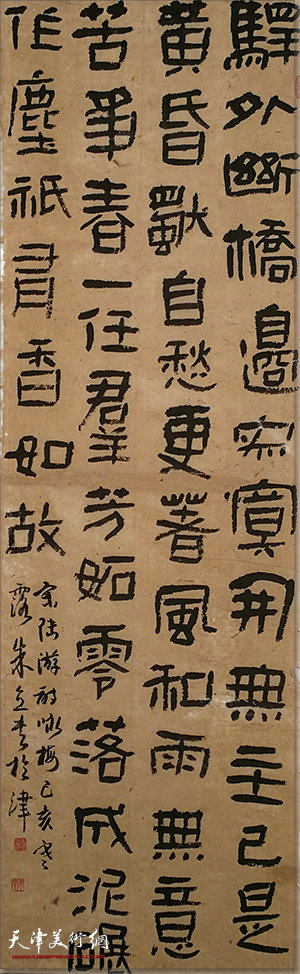 驛外斷橋邊寂寞開無主已是
黃昏獨自愁更著風和雨無意
苦爭春一任羣芳妬零落成泥碾
作塵祇有香如故
宋陸游詞咏梅己亥
露朱於津
天津美術網